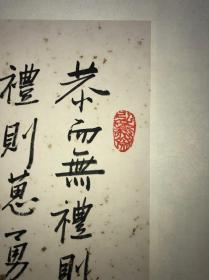 恭而無禮則
禮則葸勇